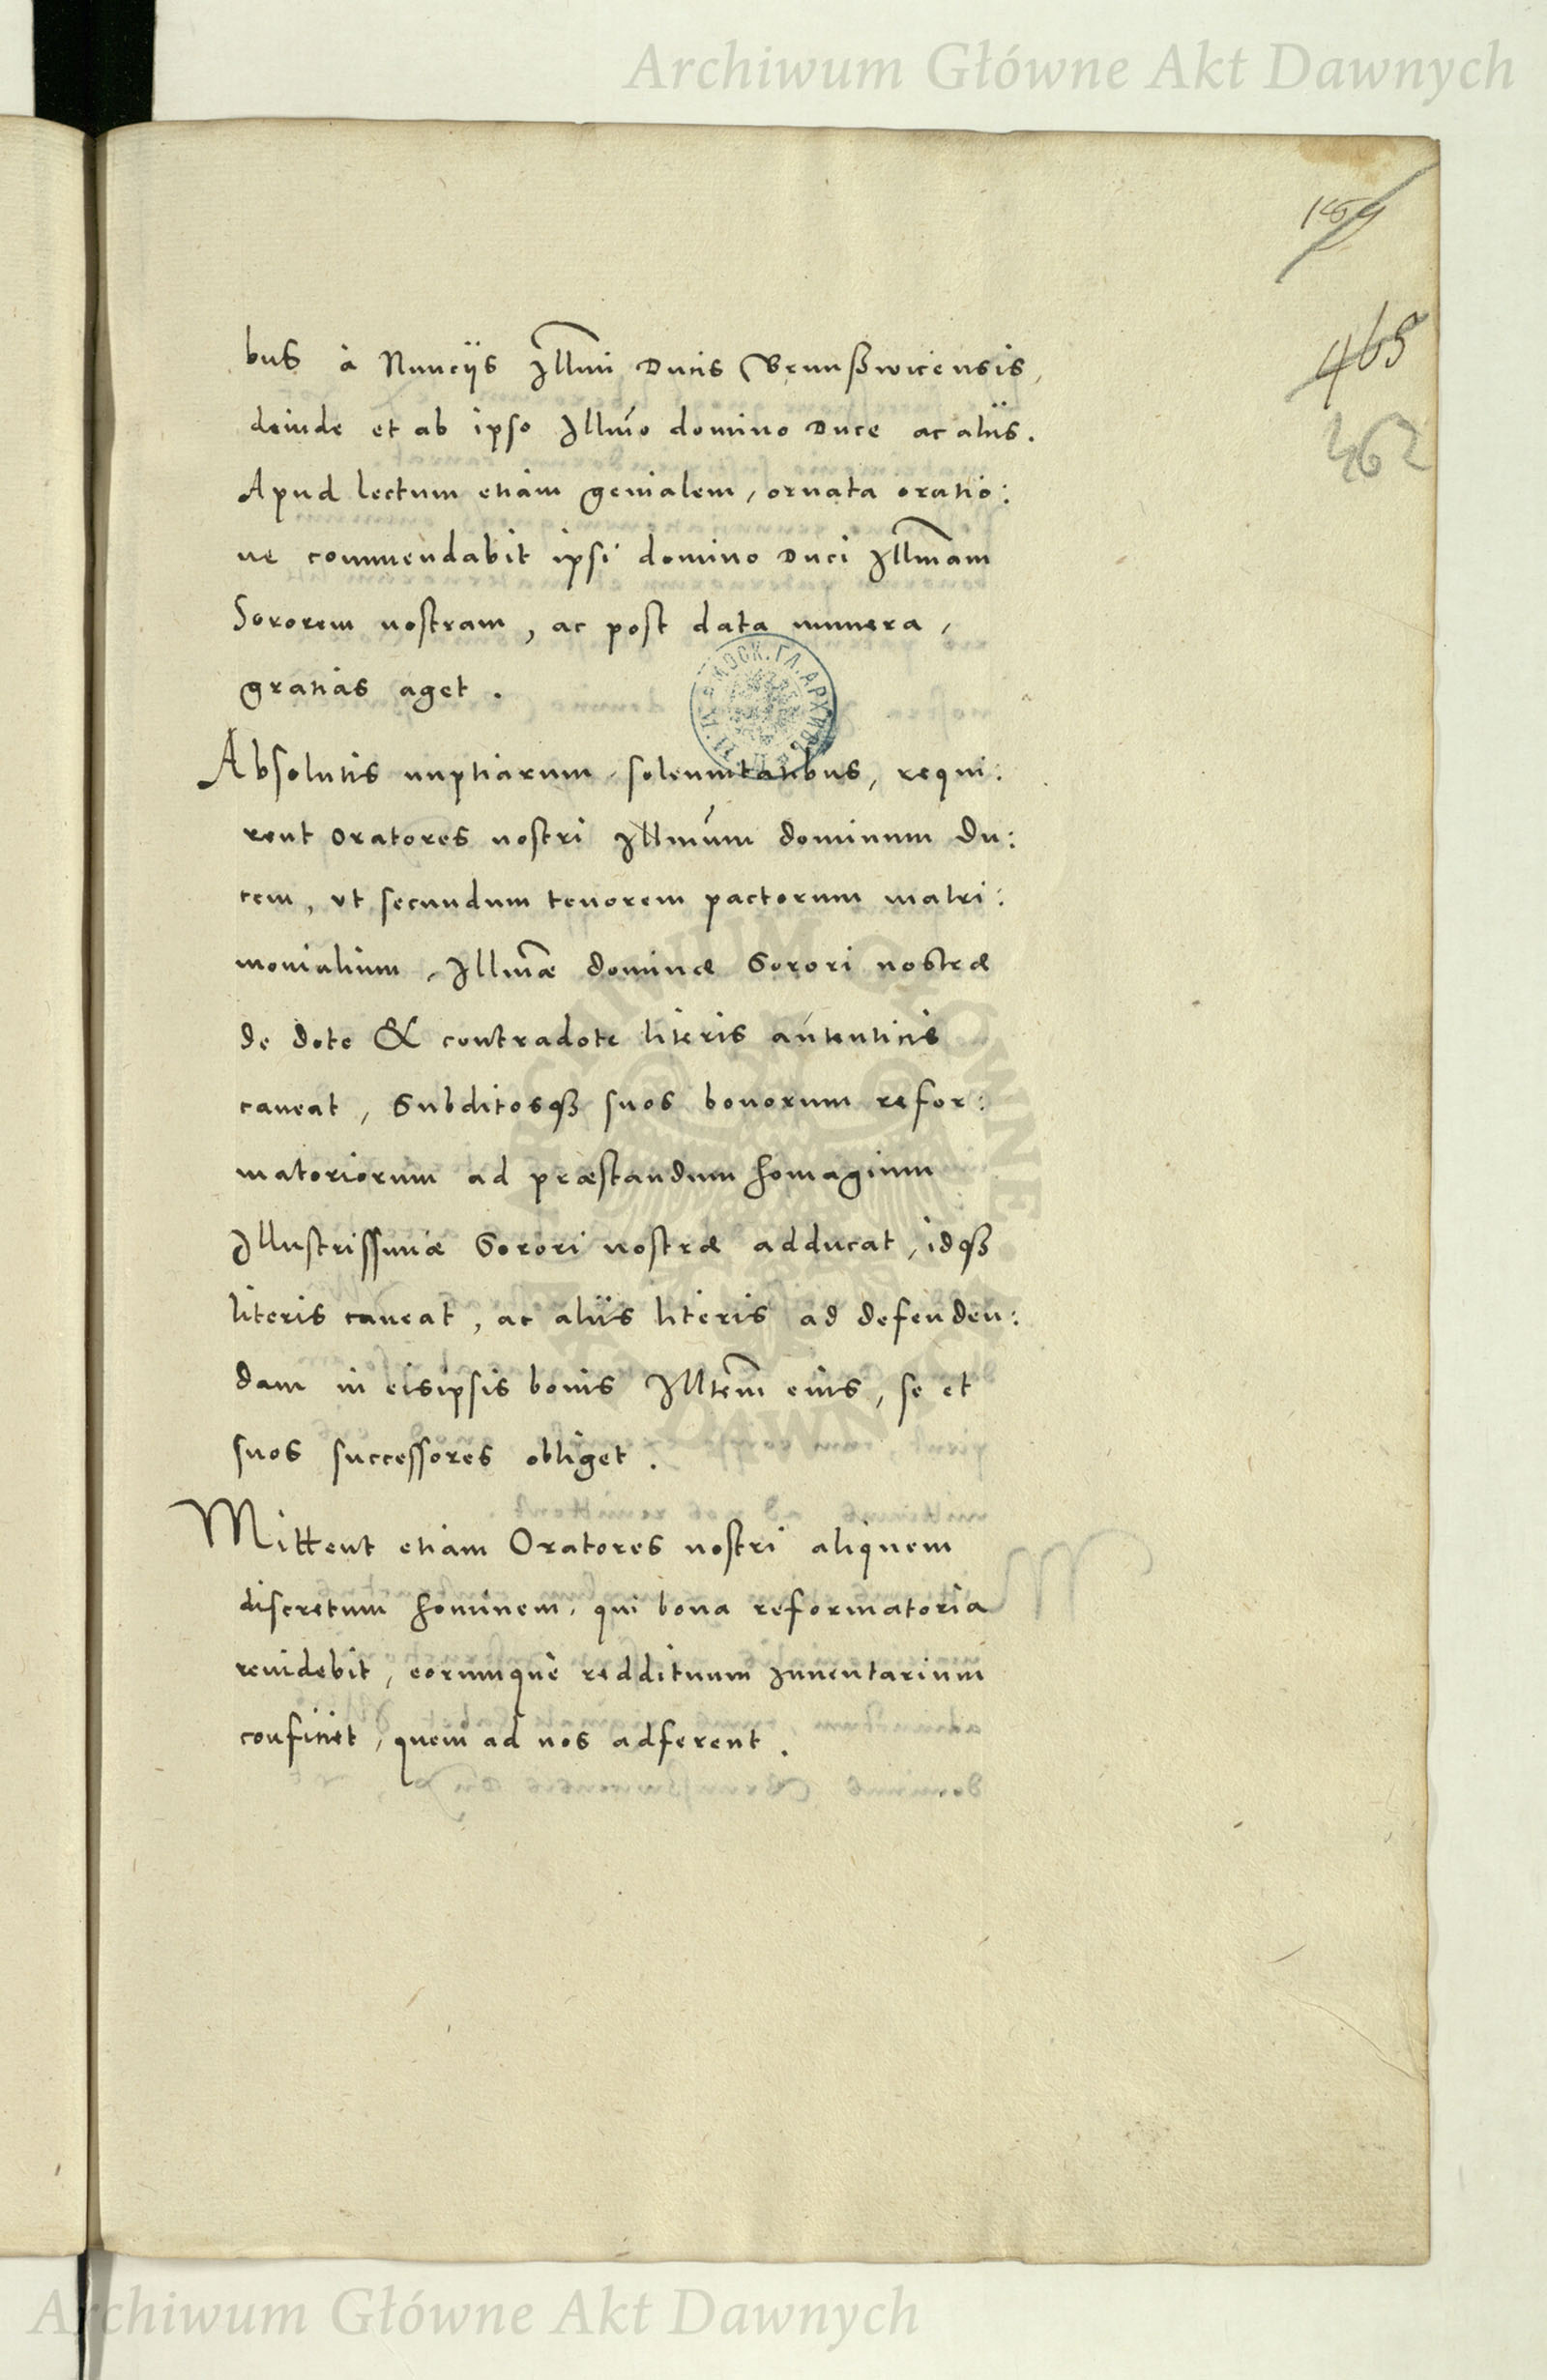 Archiwum Główne Akt Dawnych
159
465
462
bus à Nuncijs Illmi Ducis Brunßwicensis,
deinde et ab ipso Illmo domino Duce ac alijs.
Apud lectum etiam genialem, ornata oratio:
ne commendabit ipsi domino Duci Illmam
Sororem nostram, ac post data munera,
gratias aget.
Absolutis nuptiarum solennitatibus, requi:
rent oratores nostri Illmum dominum Du:
cem, vt secundum tenorem pactorum matri:
monialium, Illmæ dominæ Sorori nostræ
de dote & contradote literis autenticis
caueat, Subditosqꝫ suos bonorum refor:
matoriorum ad præstandum homagium
Illustrissimæ Sorori nostræ adducat, idqꝫ
literis caueat, ac alijs literis ad defenden:
dam in eisipsis bonis Illtem eius, se et
suos successores obliget.
Mittent etiam Oratores nostri aliquem
discretum hominem, qui bona reformatoria
reuidebit, eorumque reddituum Inuentarium
conficiet, quem ad nos adferent.
Archiwum Główne Akt Dawnych